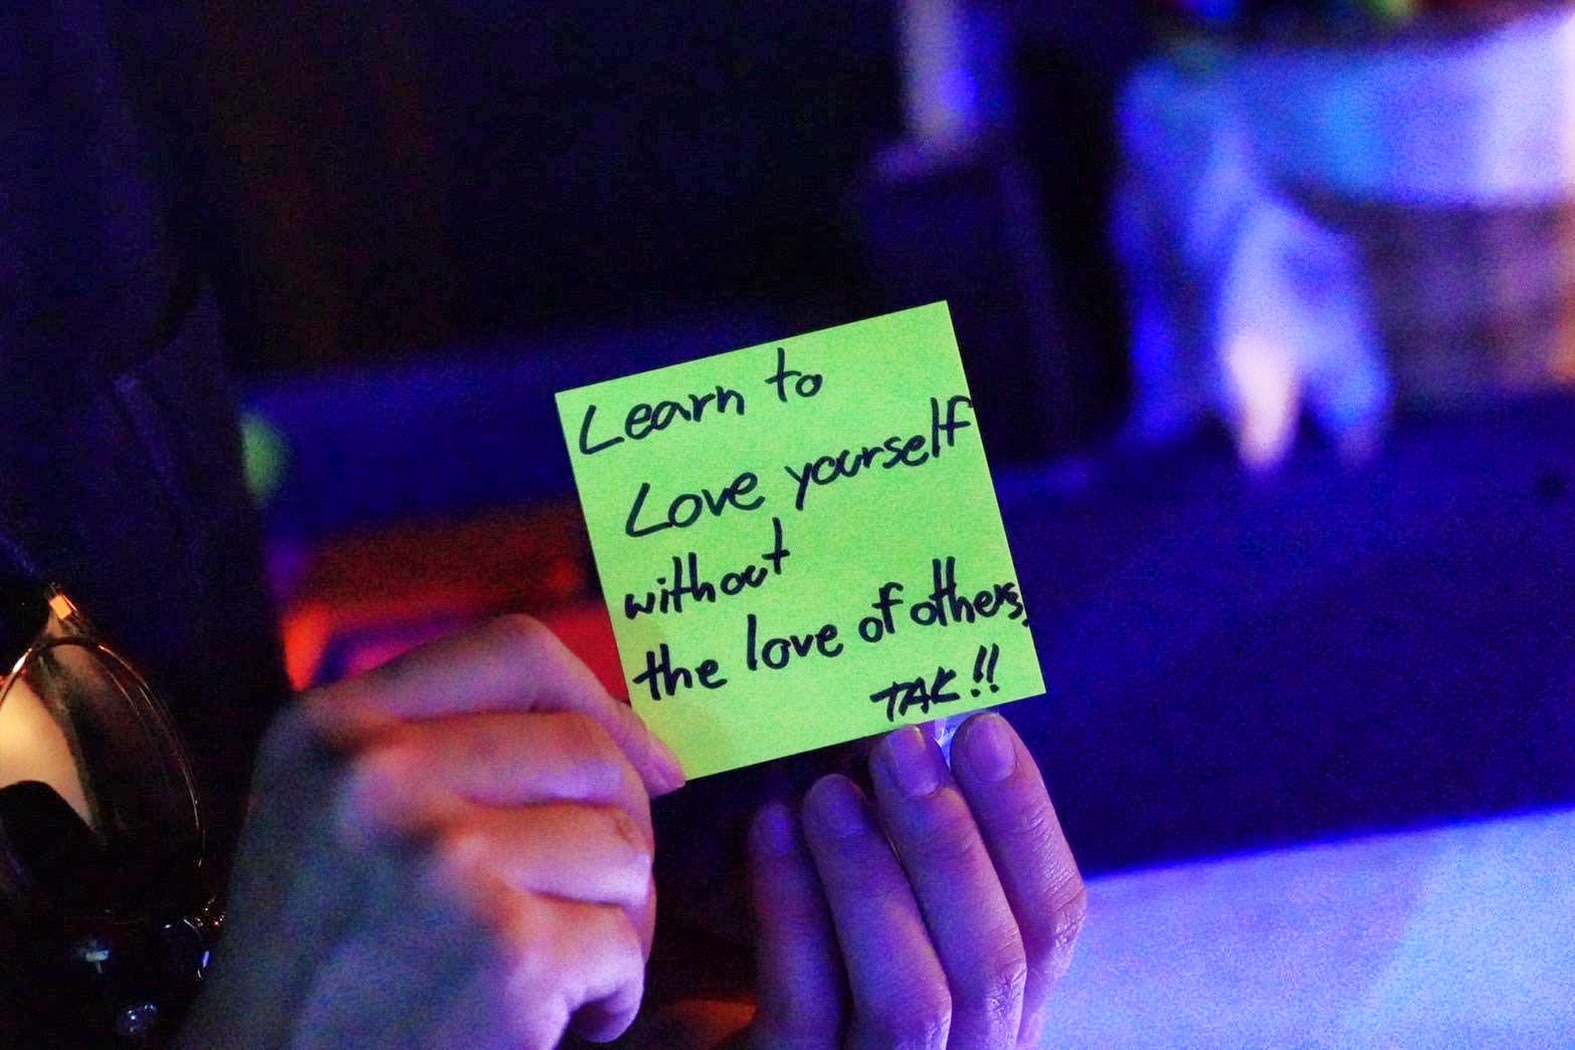 Learn to
Love yourself
without
the love of others,
TAK!!